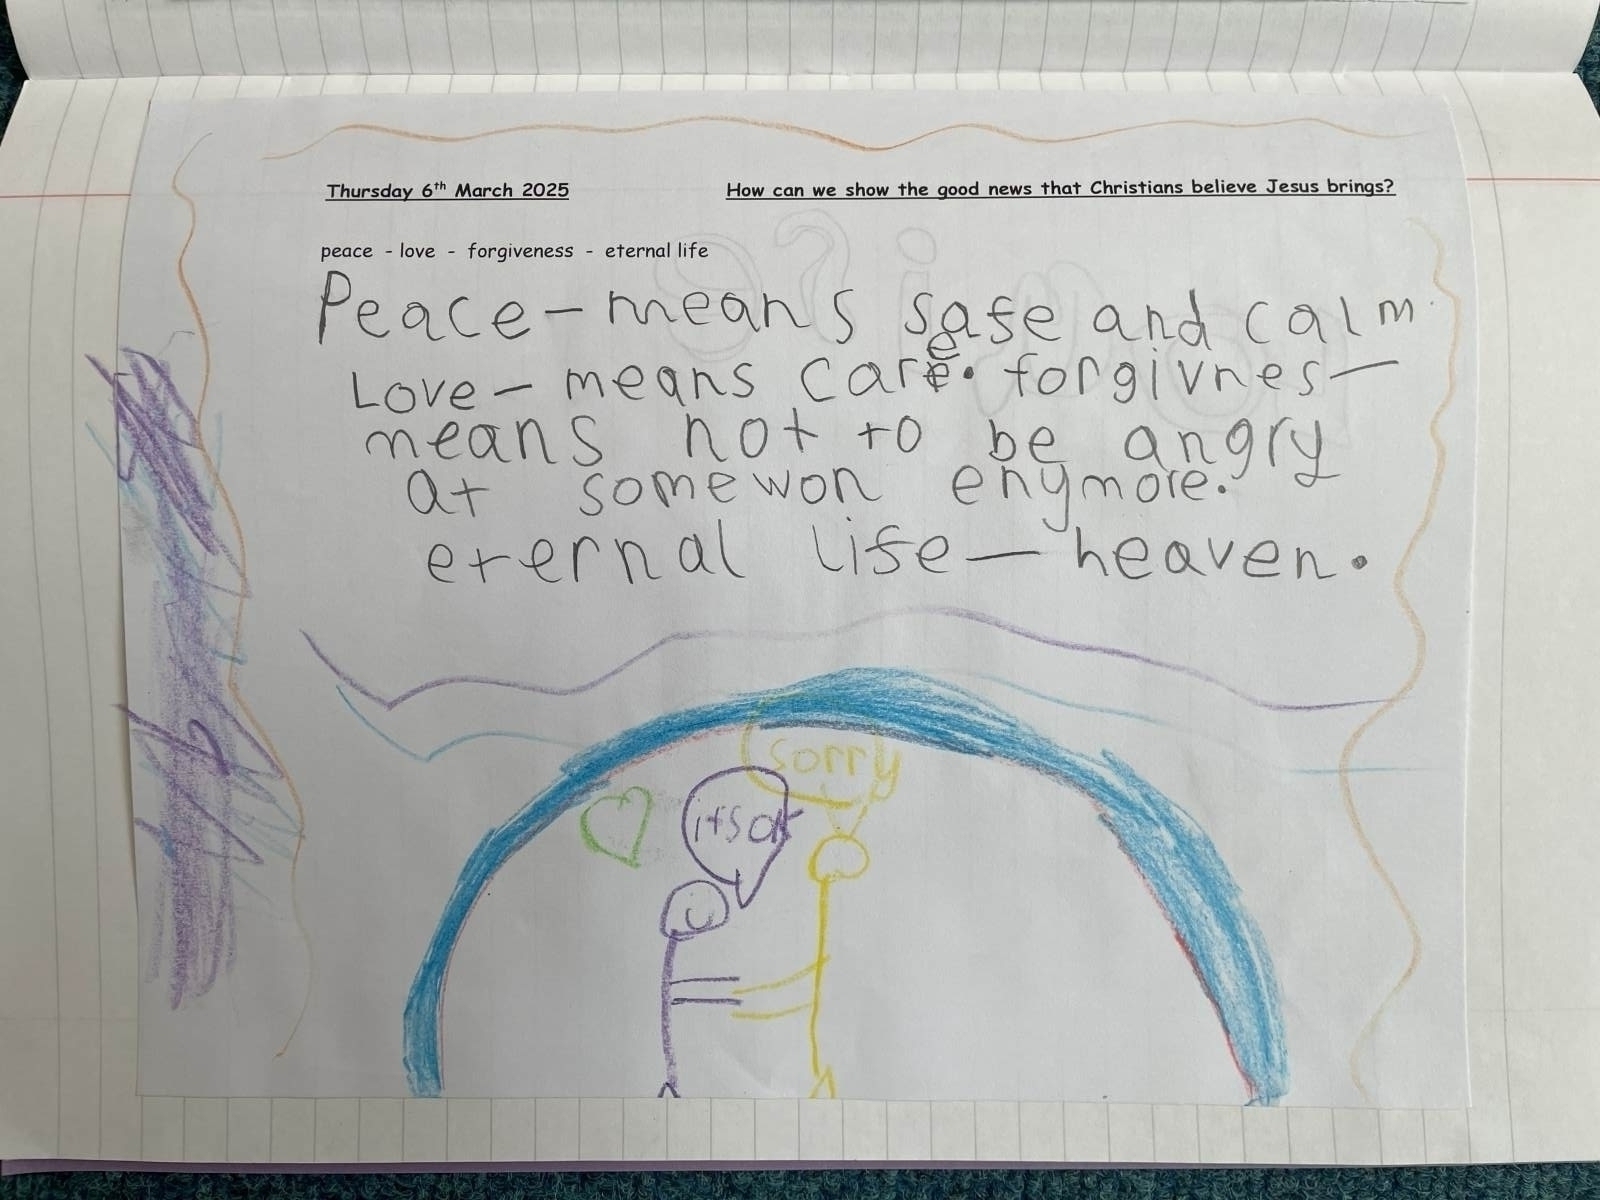 Thursday 6th March 2025 How can we show the good news that Christians believe Jesus brings?
peace - love - forgiveness - eternal life
Peace - means safe and calm.
Love - means care. forgivnes -
means not to be angry
at somewon enymore.
eternal life - heaven.
sorry
itsok